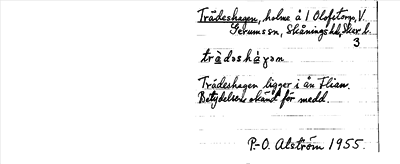 Trädeshagen, holme å 1 Olofstorp, V.
Gerumssn, Skånings hd, Skar. l.
3
trä̀dəshàgən
Trädeshagen ligger i ån Flian.
Betydelsen okänd för medd.
P.-O. Alström 1955.